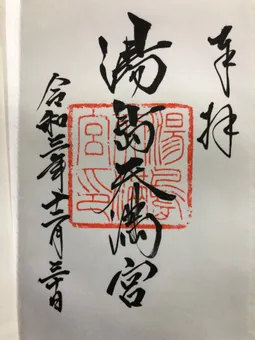 奉拝
湯島天満宮
令和三年十二月三十日